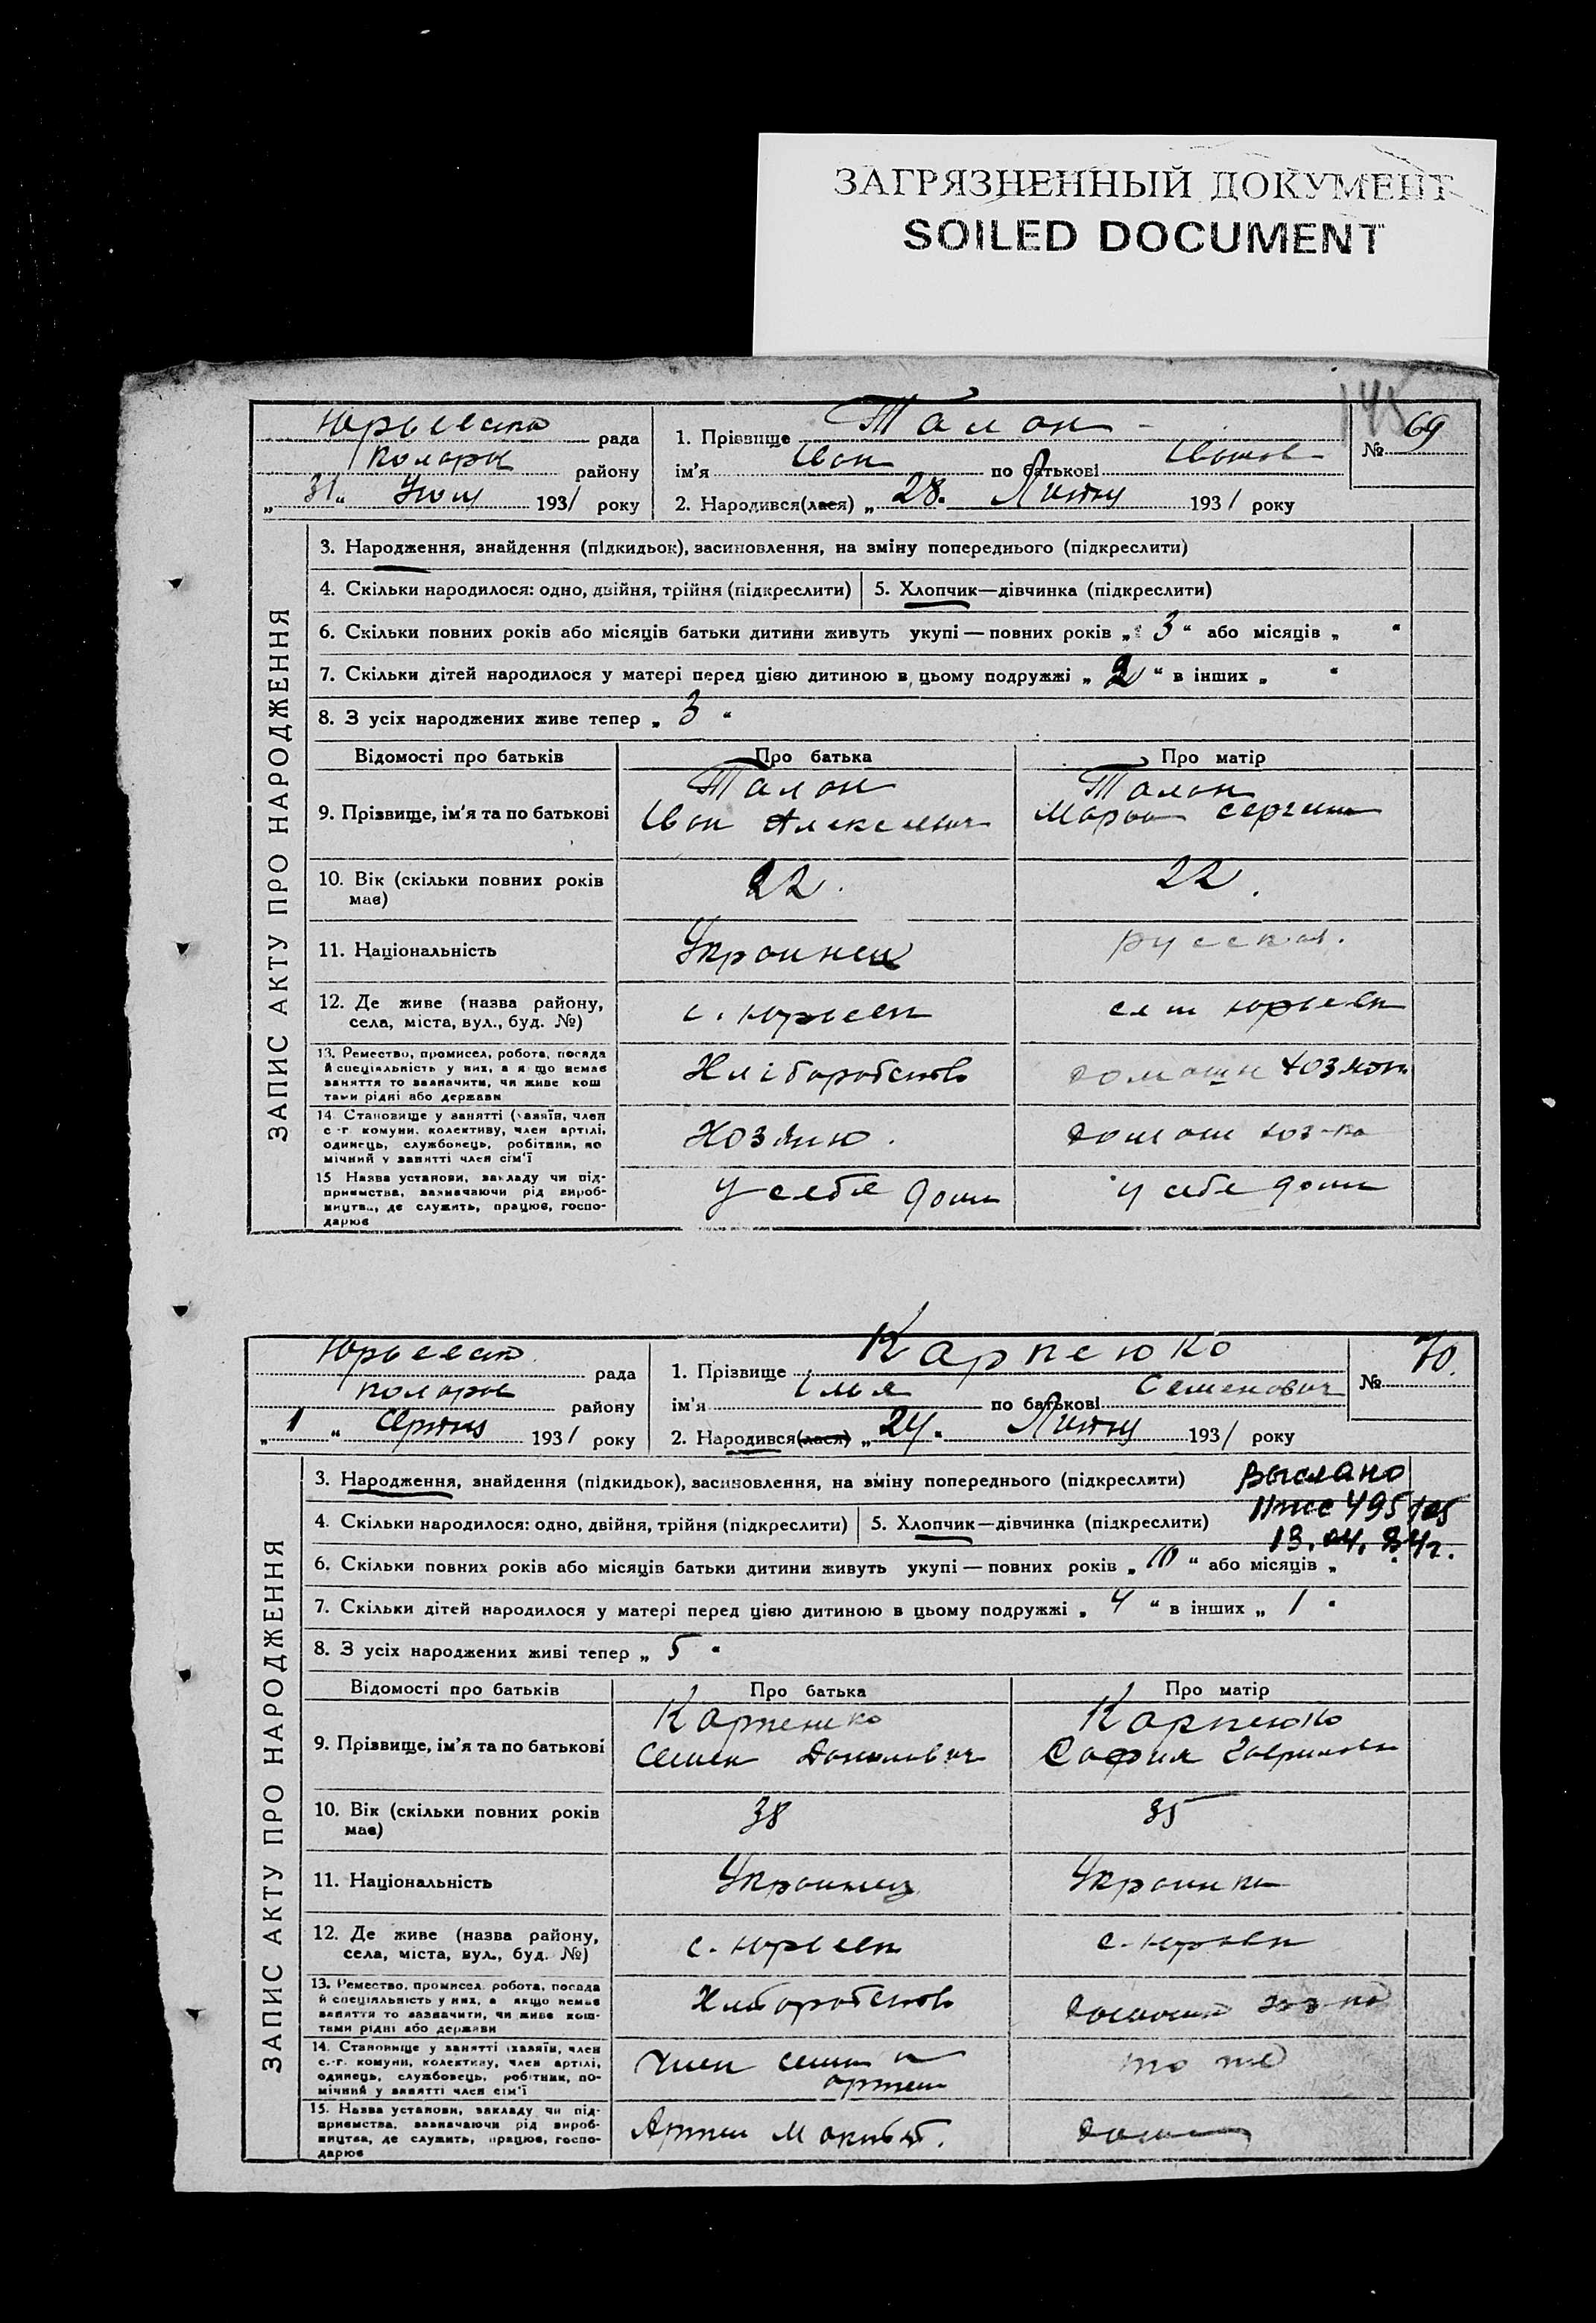 ЗАГРЯЗНЕННЫЙ ДОКУМЕНТ
SOILED DOCUMENT
145
ЗАПИС АКТУ ПРО НАРОДЖЕННЯ
рада
району
„31“ 1931 року
1. Прізвище Талан
ім'я Иван по батькові
2. Народився(лася) „28. Липня 1931 року
№ 69
3. Народження, знайдення (підкидьок), засиновлення, на зміну попереднього (підкреслити)
4. Скільки народилося: одно, двійня, трійня (підкреслити)
5. Хлопчик—дівчинка (підкреслити)
6. Скільки повних років або місяців батьки дитини живуть укупі—повних років „3“ або місяців „ “
7. Скільки дітей народилося у матері перед цією дитиною в цьому подружжі „2“ в інших „ “
8. З усіх народжених живе тепер „3“
Відомості про батьків
Про батька
Про матір
9. Прізвище, ім'я та по батькові
Талан
Иван
Талан
Мария
10. Вік (скільки повних років має)
22.
22.
11. Національність
Украинец
русская.
12. Де живе (назва району, села, міста, вул., буд. №)
с. Юрьевк
Юрьевк
13. Ремество, промисел, робота, посада й спеціяльність у них, а якщо немає заняття то зазначити, чи живе кош тами рідні або держави
Хліборобство
14. Становище у занятті (хазяїн, член с.-г. комуни, колективу, член артілі, одинець, службовець, робітник, по мічний у занятті член сім'ї
15 Назва установи, закладу чи під- приємства, зазначаючи рід вироб- ництва, де служить, працює, госпо- дарює
у себя дома
у себе дома
ЗАПИС АКТУ ПРО НАРОДЖЕННЯ
рада
району
„1“ Серпня 1931 року
1. Прізвище Карпенко
ім'я Илья по батькові Семенович
2. Народився(лася) „24. Липня 1931 року
№ 70.
Выслано
495/105
13.04.84г.
3. Народження, знайдення (підкидьок), засиновлення, на зміну попереднього (підкреслити)
4. Скільки народилося: одно, двійня, трійня (підкреслити)
5. Хлопчик—дівчинка (підкреслити)
6. Скільки повних років або місяців батьки дитини живуть укупі—повних років „10“ або місяців „ “
7. Скільки дітей народилося у матері перед цією дитиною в цьому подружжі „4“ в інших „1“
8. З усіх народжених живі тепер „5“
Відомості про батьків
Про батька
Про матір
9. Прізвище, ім'я та по батькові
Карпенко
Семен
Карпенко
София
10. Вік (скільки повних років має)
38
35
11. Національність
Украинец
Украинка
12. Де живе (назва району, села, міста, вул., буд. №)
с. Юрьевк
с. Юрьевк
13. Ремество, промисел, робота, посада й спеціяльність у них, а якщо немає заняття то зазначити, чи живе кош- тами рідні або держави
Хліборобство
14. Становище у занятті (хазяїн, член с.-г. комуни, колективу, член артілі, одинець, службовець, робітник, по- мічний у занятті член сім'ї
то же
15. Назва установи, закладу чи під- приємства, зазначаючи рід вироб- ництва, де служить, працює, госпо- дарює